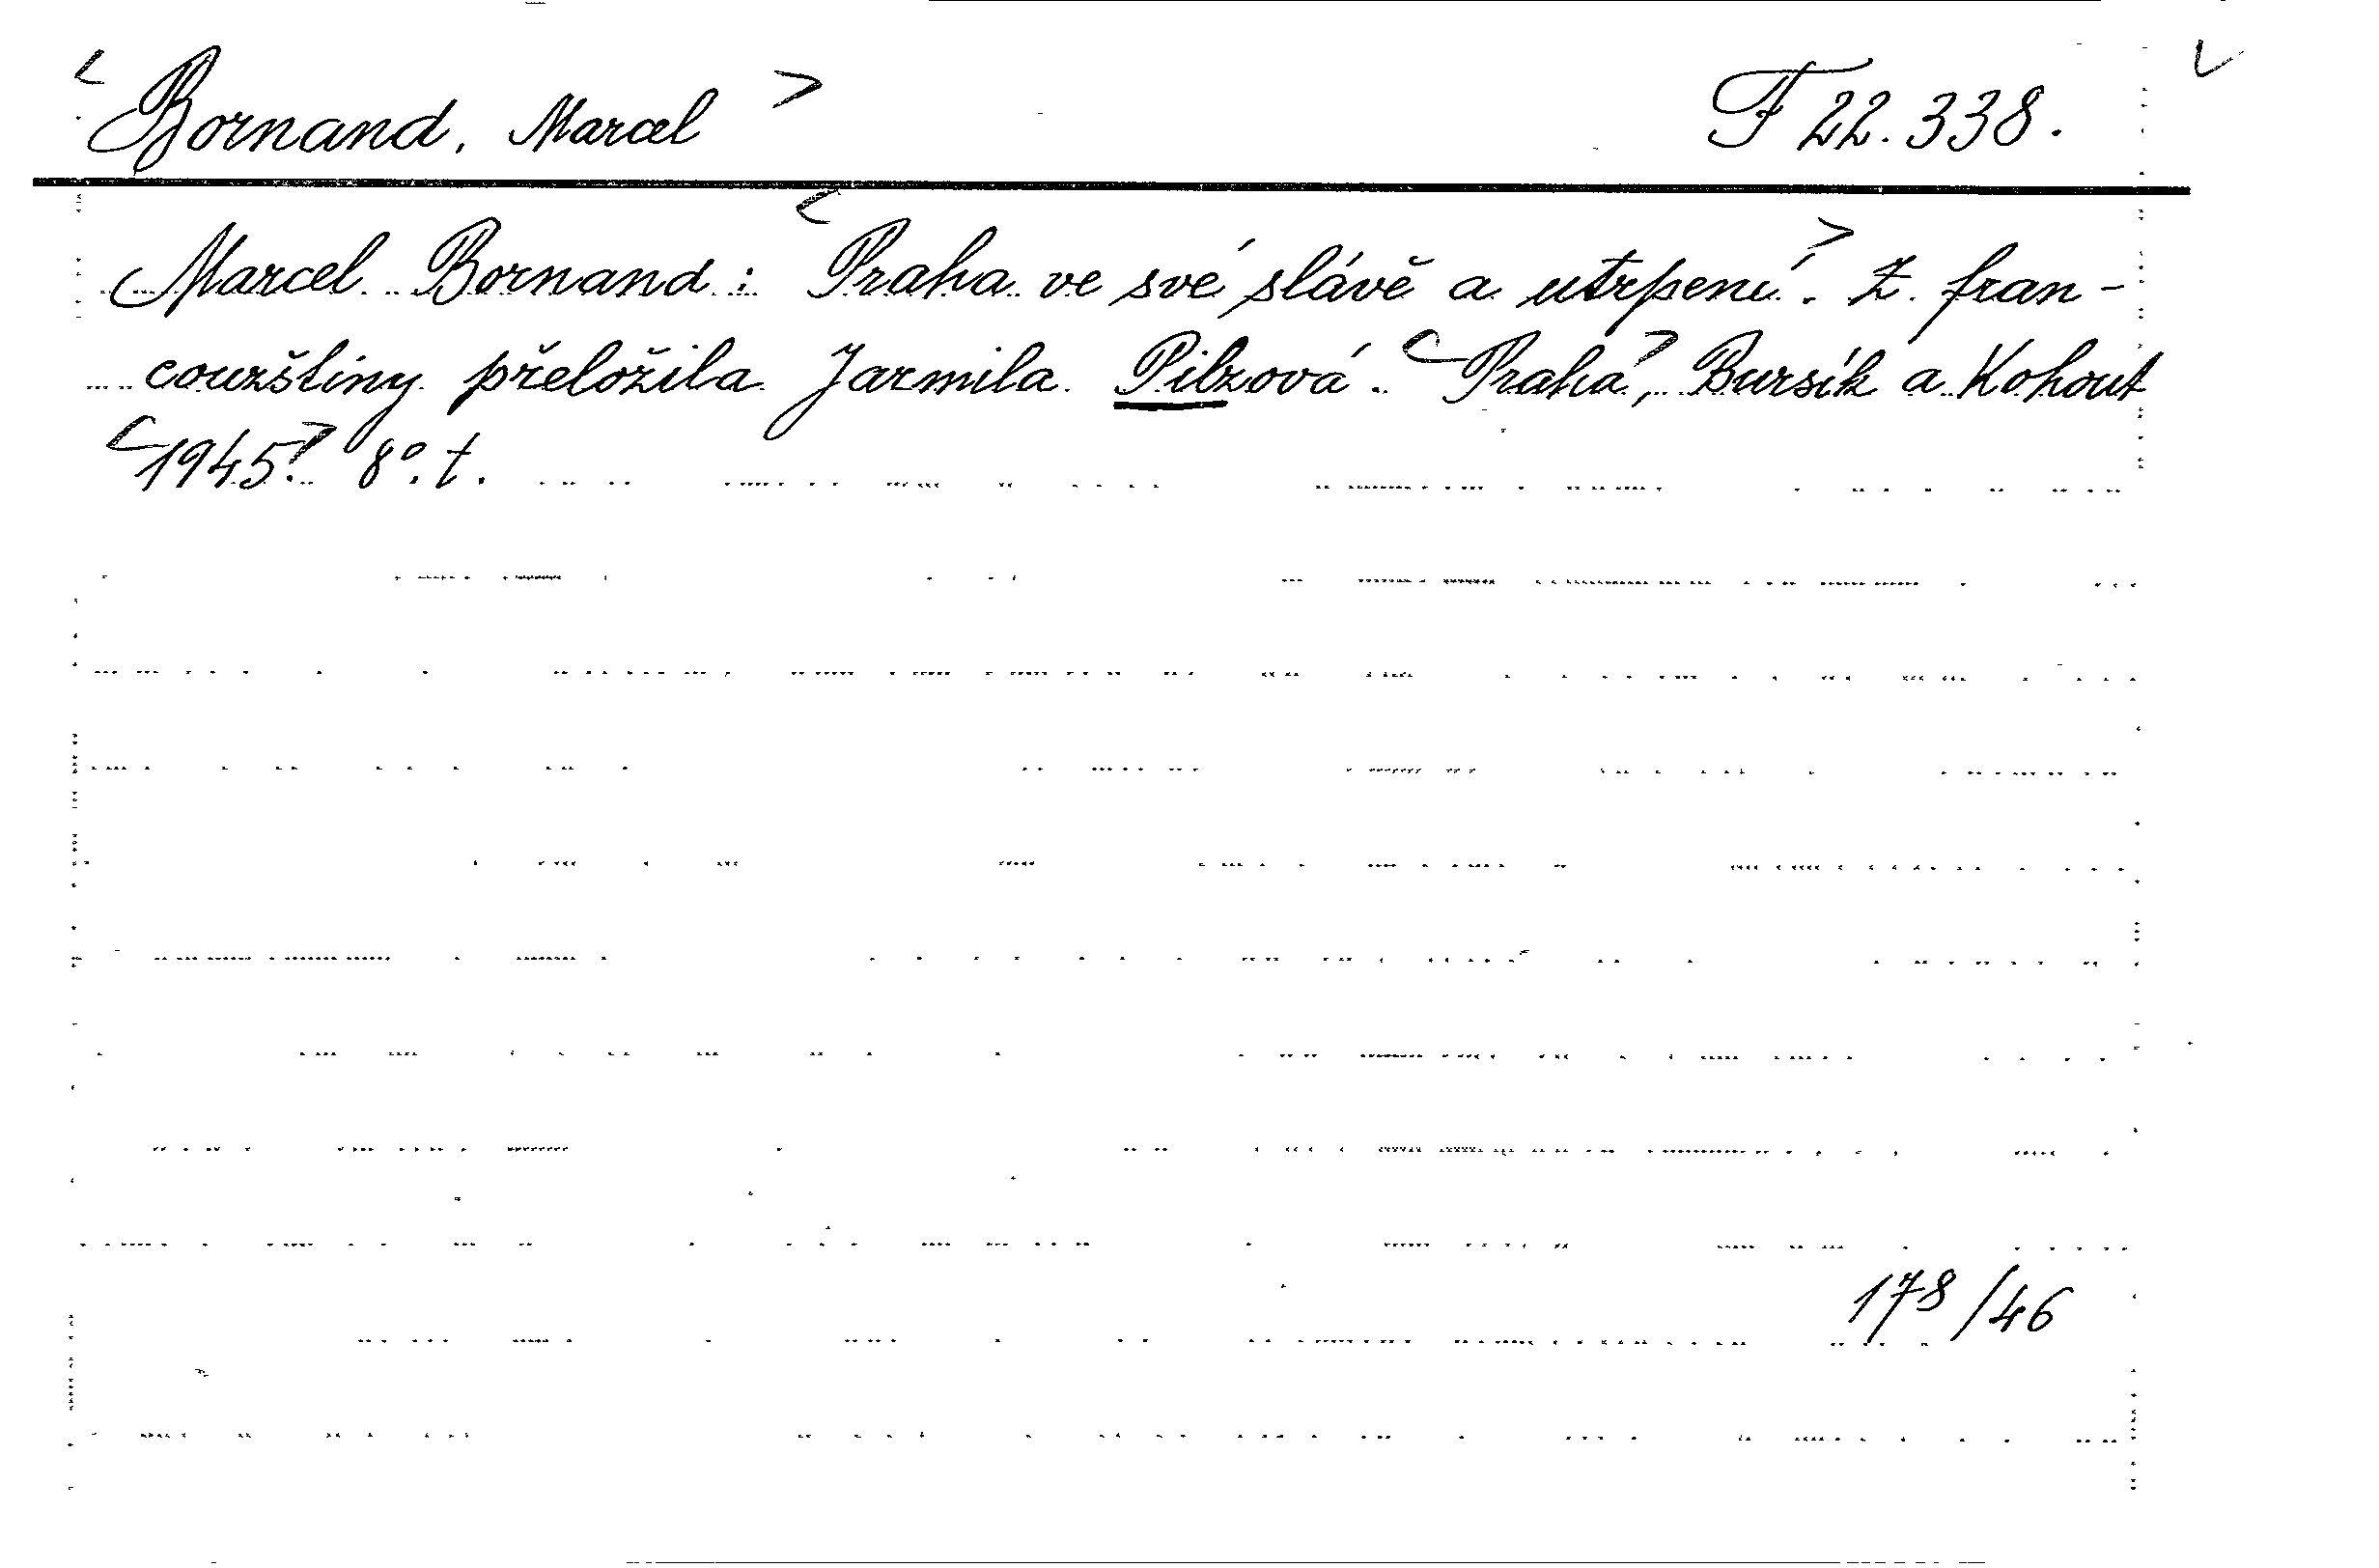 <Bornand, Marcel> F 22.338.
Marcel Bornand: <Praha ve své slávě a utrpení>. Z fran-
couzštiny přeložila Jarmila Pilzová. <Praha>, Bursík a Kohout
<1945>. 8°. t.
178/46